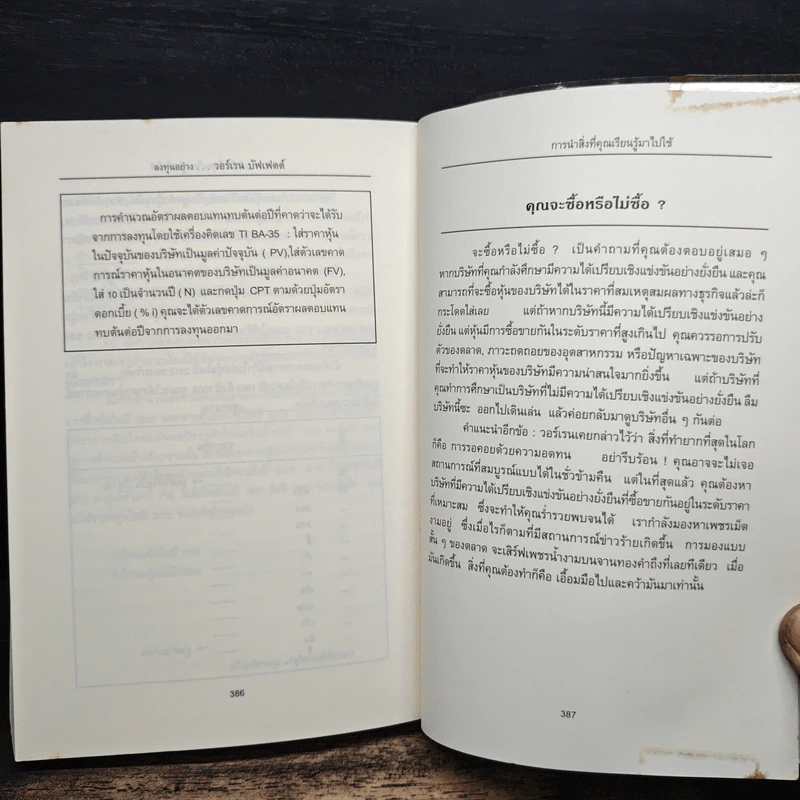 ลงทุนอย่าง . . . วอร์เรน บัฟเฟตต์
การคำนวณอัตราผลตอบแทนทบต้นต่อปีที่คาดว่าจะได้รับ
จากการลงทุนโดยใช้เครื่องคิดเลข TI BA-35 : ใส่ราคาหุ้น
ในปัจจุบันของบริษัทเป็นมูลค่าปัจจุบัน ( PV),ใส่ตัวเลขคาด
การณ์ราคาหุ้นในอนาคตของบริษัทเป็นมูลค่าอนาคต (FV),
ใส่ 10 เป็นจำนวนปี (N) และกดปุ่ม CPT ตามด้วยปุ่มอัตรา
ดอกเบี้ย ( % i) คุณจะได้ตัวเลขคาดการณ์อัตราผลตอบแทน
ทบต้นต่อปีจากการลงทุนออกมา
386
การนำสิ่งที่คุณเรียนรู้มาไปใช้
คุณจะซื้อหรือไม่ซื้อ ?
จะซื้อหรือไม่ซื้อ ? เป็นคำถามที่คุณต้องตอบอยู่เสมอ ๆ
หากบริษัทที่คุณกำลังศึกษามีความได้เปรียบเชิงแข่งขันอย่างยั่งยืน และคุณ
สามารถที่จะซื้อหุ้นของบริษัทได้ในราคาที่สมเหตุสมผลทางธุรกิจแล้วล่ะก็
กระโดดใส่เลย แต่ถ้าหากบริษัทนี้มีความได้เปรียบเชิงแข่งขันอย่าง
ยั่งยืน แต่หุ้นมีการซื้อขายกันในระดับราคาที่สูงเกินไป คุณควรรอการปรับ
ตัวของตลาด, ภาวะถดถอยของอุตสาหกรรม หรือปัญหาเฉพาะของบริษัท
ที่จะทำให้ราคาหุ้นของบริษัทมีความน่าสนใจมากยิ่งขึ้น แต่ถ้าบริษัทที่
คุณทำการศึกษาเป็นบริษัทที่ไม่มีความได้เปรียบเชิงแข่งขันอย่างยั่งยืน ลืม
บริษัทนี้ซะ ออกไปเดินเล่น แล้วค่อยกลับมาดูบริษัทอื่น ๆ กันต่อ
คำแนะนำอีกข้อ : วอร์เรนเคยกล่าวไว้ว่า สิ่งที่ทำยากที่สุดในโลก
ก็คือ การรอคอยด้วยความอดทน อย่ารีบร้อน ! คุณอาจจะไม่เจอ
สถานการณ์ที่สมบูรณ์แบบได้ในชั่วข้ามคืน แต่ในที่สุดแล้ว คุณต้องหา
บริษัทที่มีความได้เปรียบเชิงแข่งขันอย่างยั่งยืนที่ซื้อขายกันอยู่ในระดับราคา
ที่เหมาะสม ซึ่งจะทำให้คุณร่ำรวยพบจนได้ เรากำลังมองหาเพชรเม็ด
งามอยู่ ซึ่งเมื่อไรก็ตามที่มีสถานการณ์ข่าวร้ายเกิดขึ้น การมองแบบ
สั้น ๆ ของตลาด จะเสิร์ฟเพชรน้ำงามบนจานทองคำถึงที่เลยทีเดียว เมื่อ
มันเกิดขึ้น สิ่งที่คุณต้องทำก็คือ เอื้อมมือไปและคว้ามันมาเท่านั้น
387